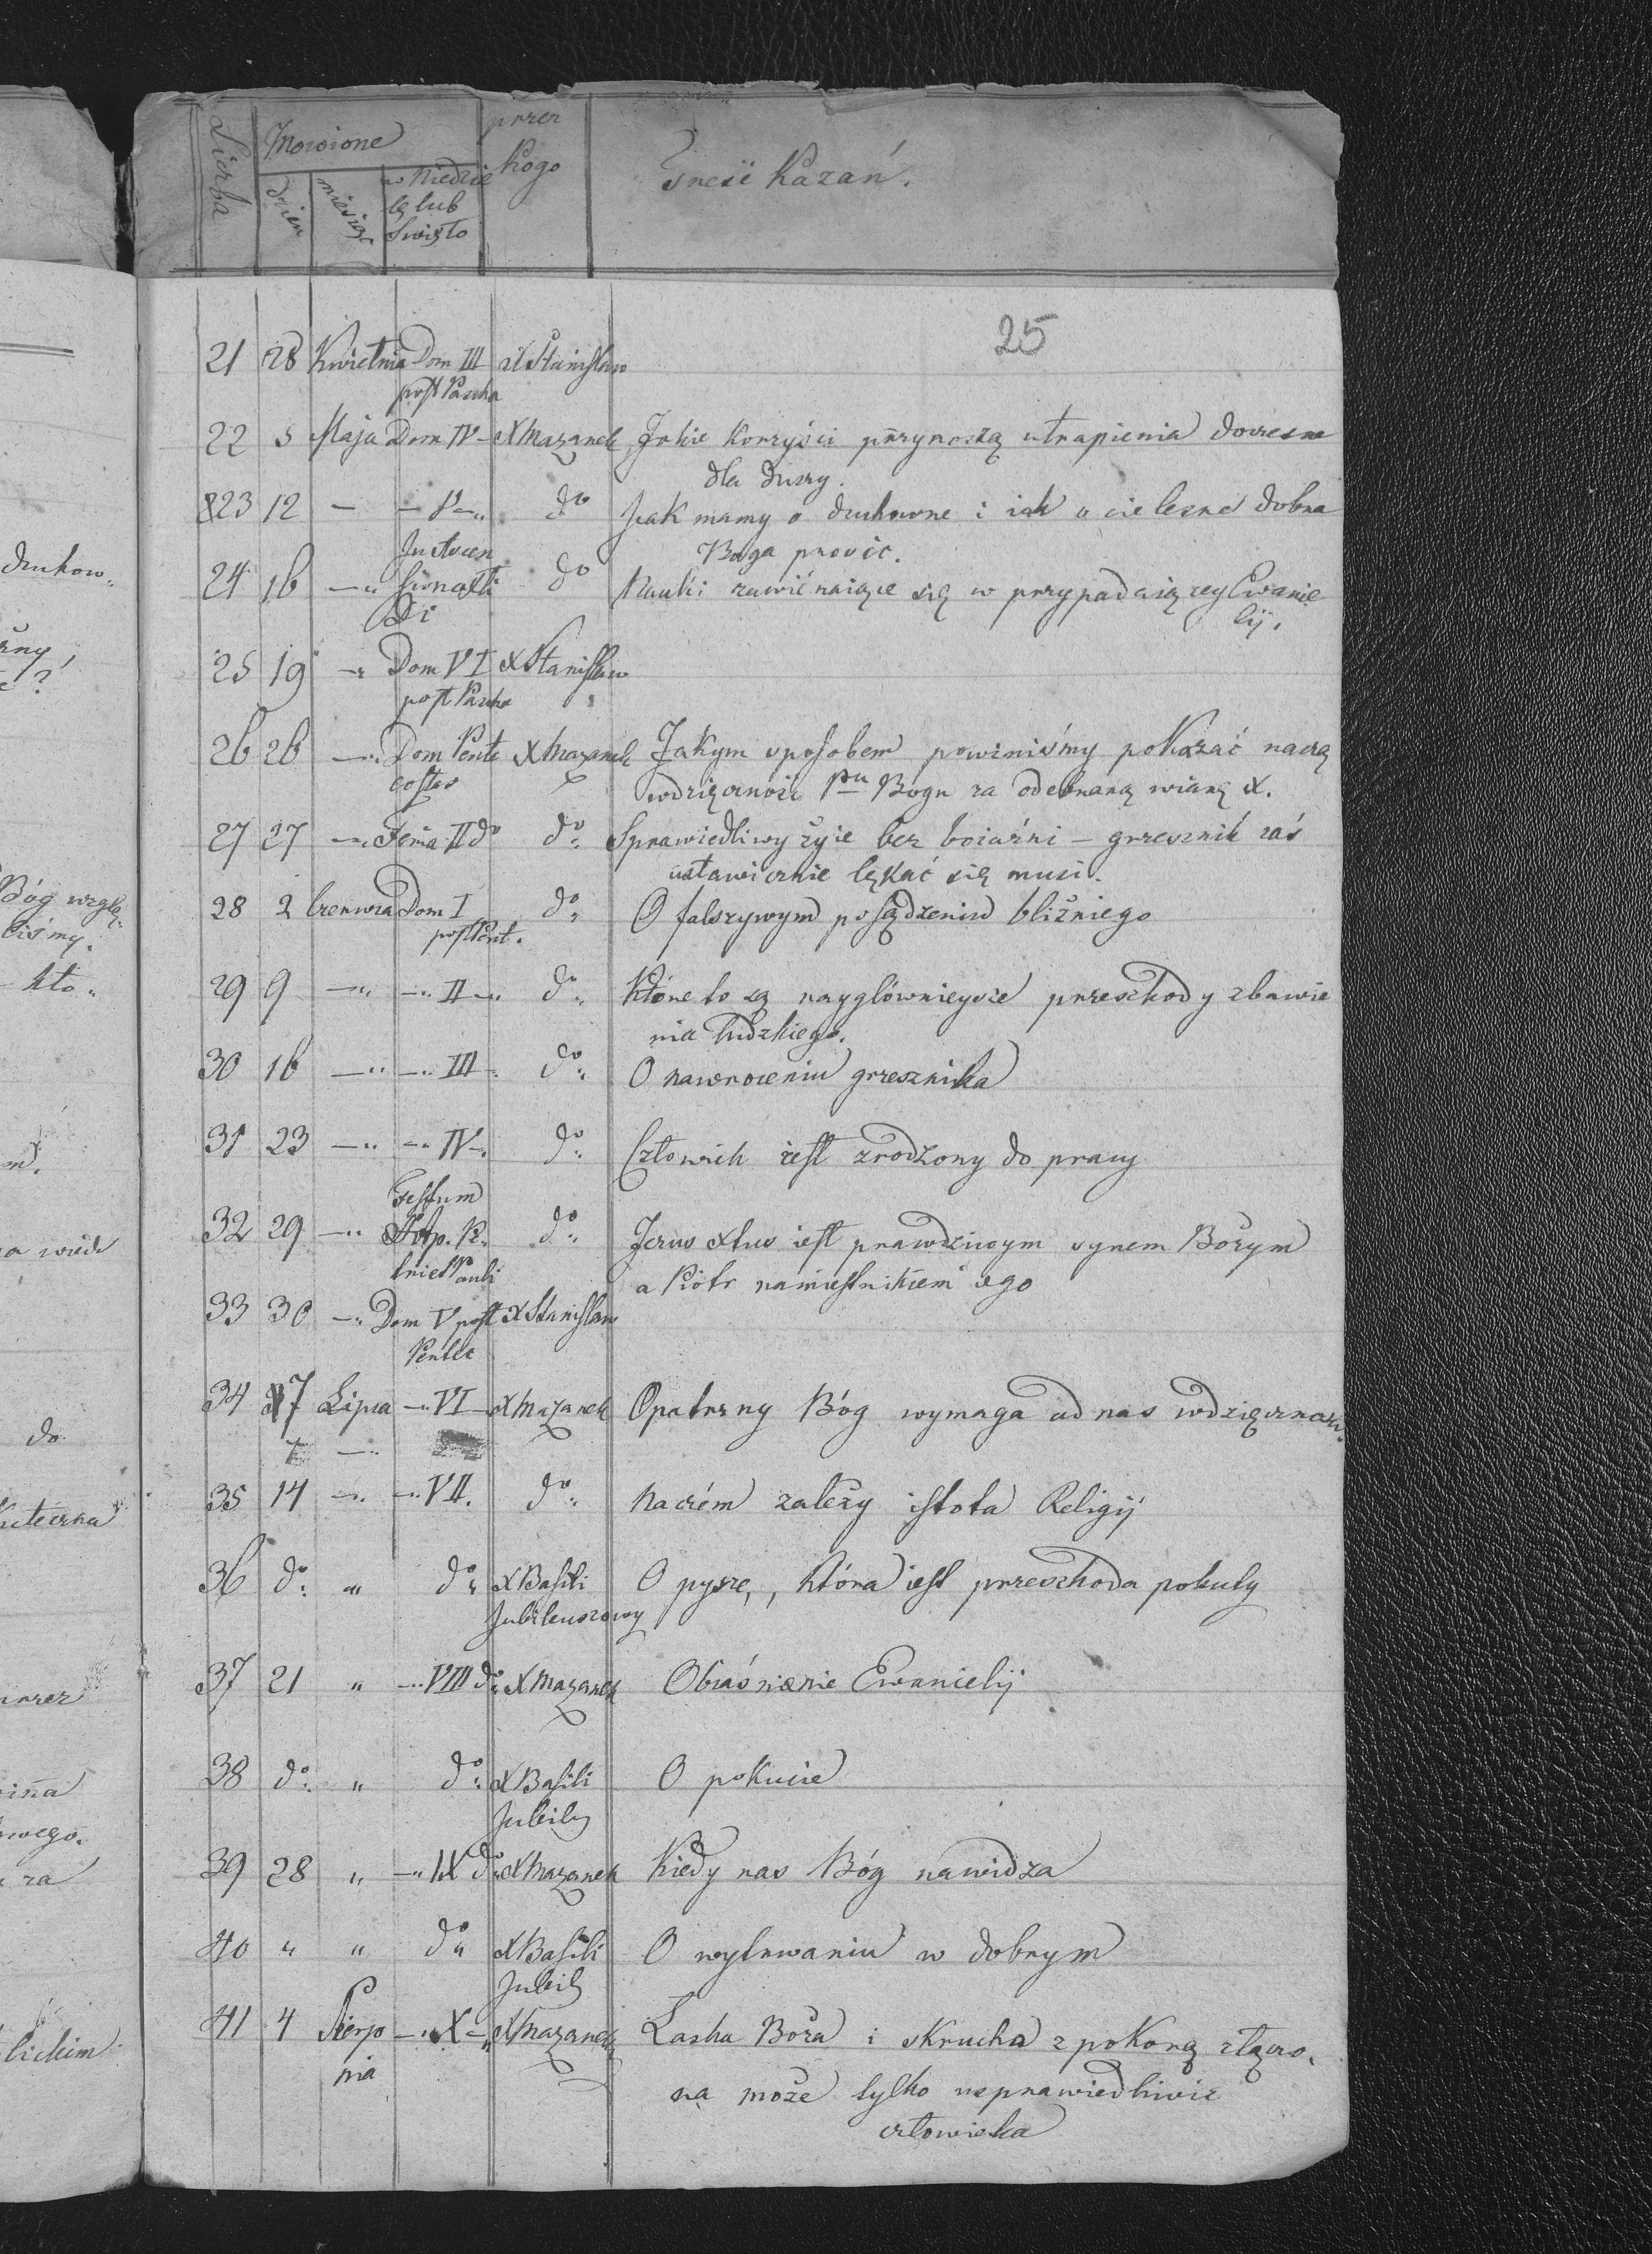 Liczba
Mowione
przez
kogo
Treść Kazań.
dzien
miesiąc
w Niedzie
lę lub
Swięto
25
21 28 Kwietnia Dom III X Stanisław
post Pascha
22 5 Maja Dom IV - X Mazanek Jakie korzyści przynoszą utrapienia doczesne
dla duszy.
23 12 — — V —„ do Jak mamy o duchowne i iak o cielesne dobra
Boga prosić.
24 16 —„ do Nauki zawieraiące się w przypadaiącey Ewanie
lij.
25 19 —„ Dom VI X Stanisław
post Pascha
26 26 —„ Dom Pente X Mazanek Jakym sposobem powiniśmy pokazać naszą
costes wdzięcznosć Pu Bogu za odebraną wiarę X.
27 27 —„ Feria II do do„ Sprawiedliwy żyie bez boiaźni — grzesznik zaś
ustawicznie lękać się musi.
28 2 Czerwca Dom I do„ O falszywym posądzeniu bliźniego
post Pent.
29 9 —„ —„ II —„ do„ Które to są nayglównieysze przeszkody zbawie
nia ludzkiego.
30 16 —„ —„ III —„ do„ O nawroceniu grzesznika
31 23 —„ —„ IV —„ do„ Człowiek iest zrodzony do pracy
Festum
32 29 —„ do„ Jezus Xtus iest prawdziwym synem Bożym
Pauli a Piotr namiestnikiem iego
33 30 —„ Dom V post X Stanisław
Pente
34 7 Lipca —„ VI — X Mazanek Opatrzny Bóg wymaga od nas wdzięcznosci.
35 14 —„ —„ VII. do„ Na czém zależy istota Religij
36 do„ „ do„ X Basili O pysze, która iest przeszkoda pokuty
Jubileuszowy
37 21 „ —„ VIII do„ X Mazanek Obiaśnienie Ewanielij
38 do„ „ do„ X Basili O pokucie
Jubily
39 28 „ —„ IX do„ X Mazanek Kiedy nas Bóg nawidza
40 „ „ do„ X Basili O wytrwaniu w dobrym
Jubil
41 4 Sierp —„ X —„ X Mazanek Łaska Boża i skrucha z pokorą złączo„
nia na może tylko usprawiedliwic
człowieka